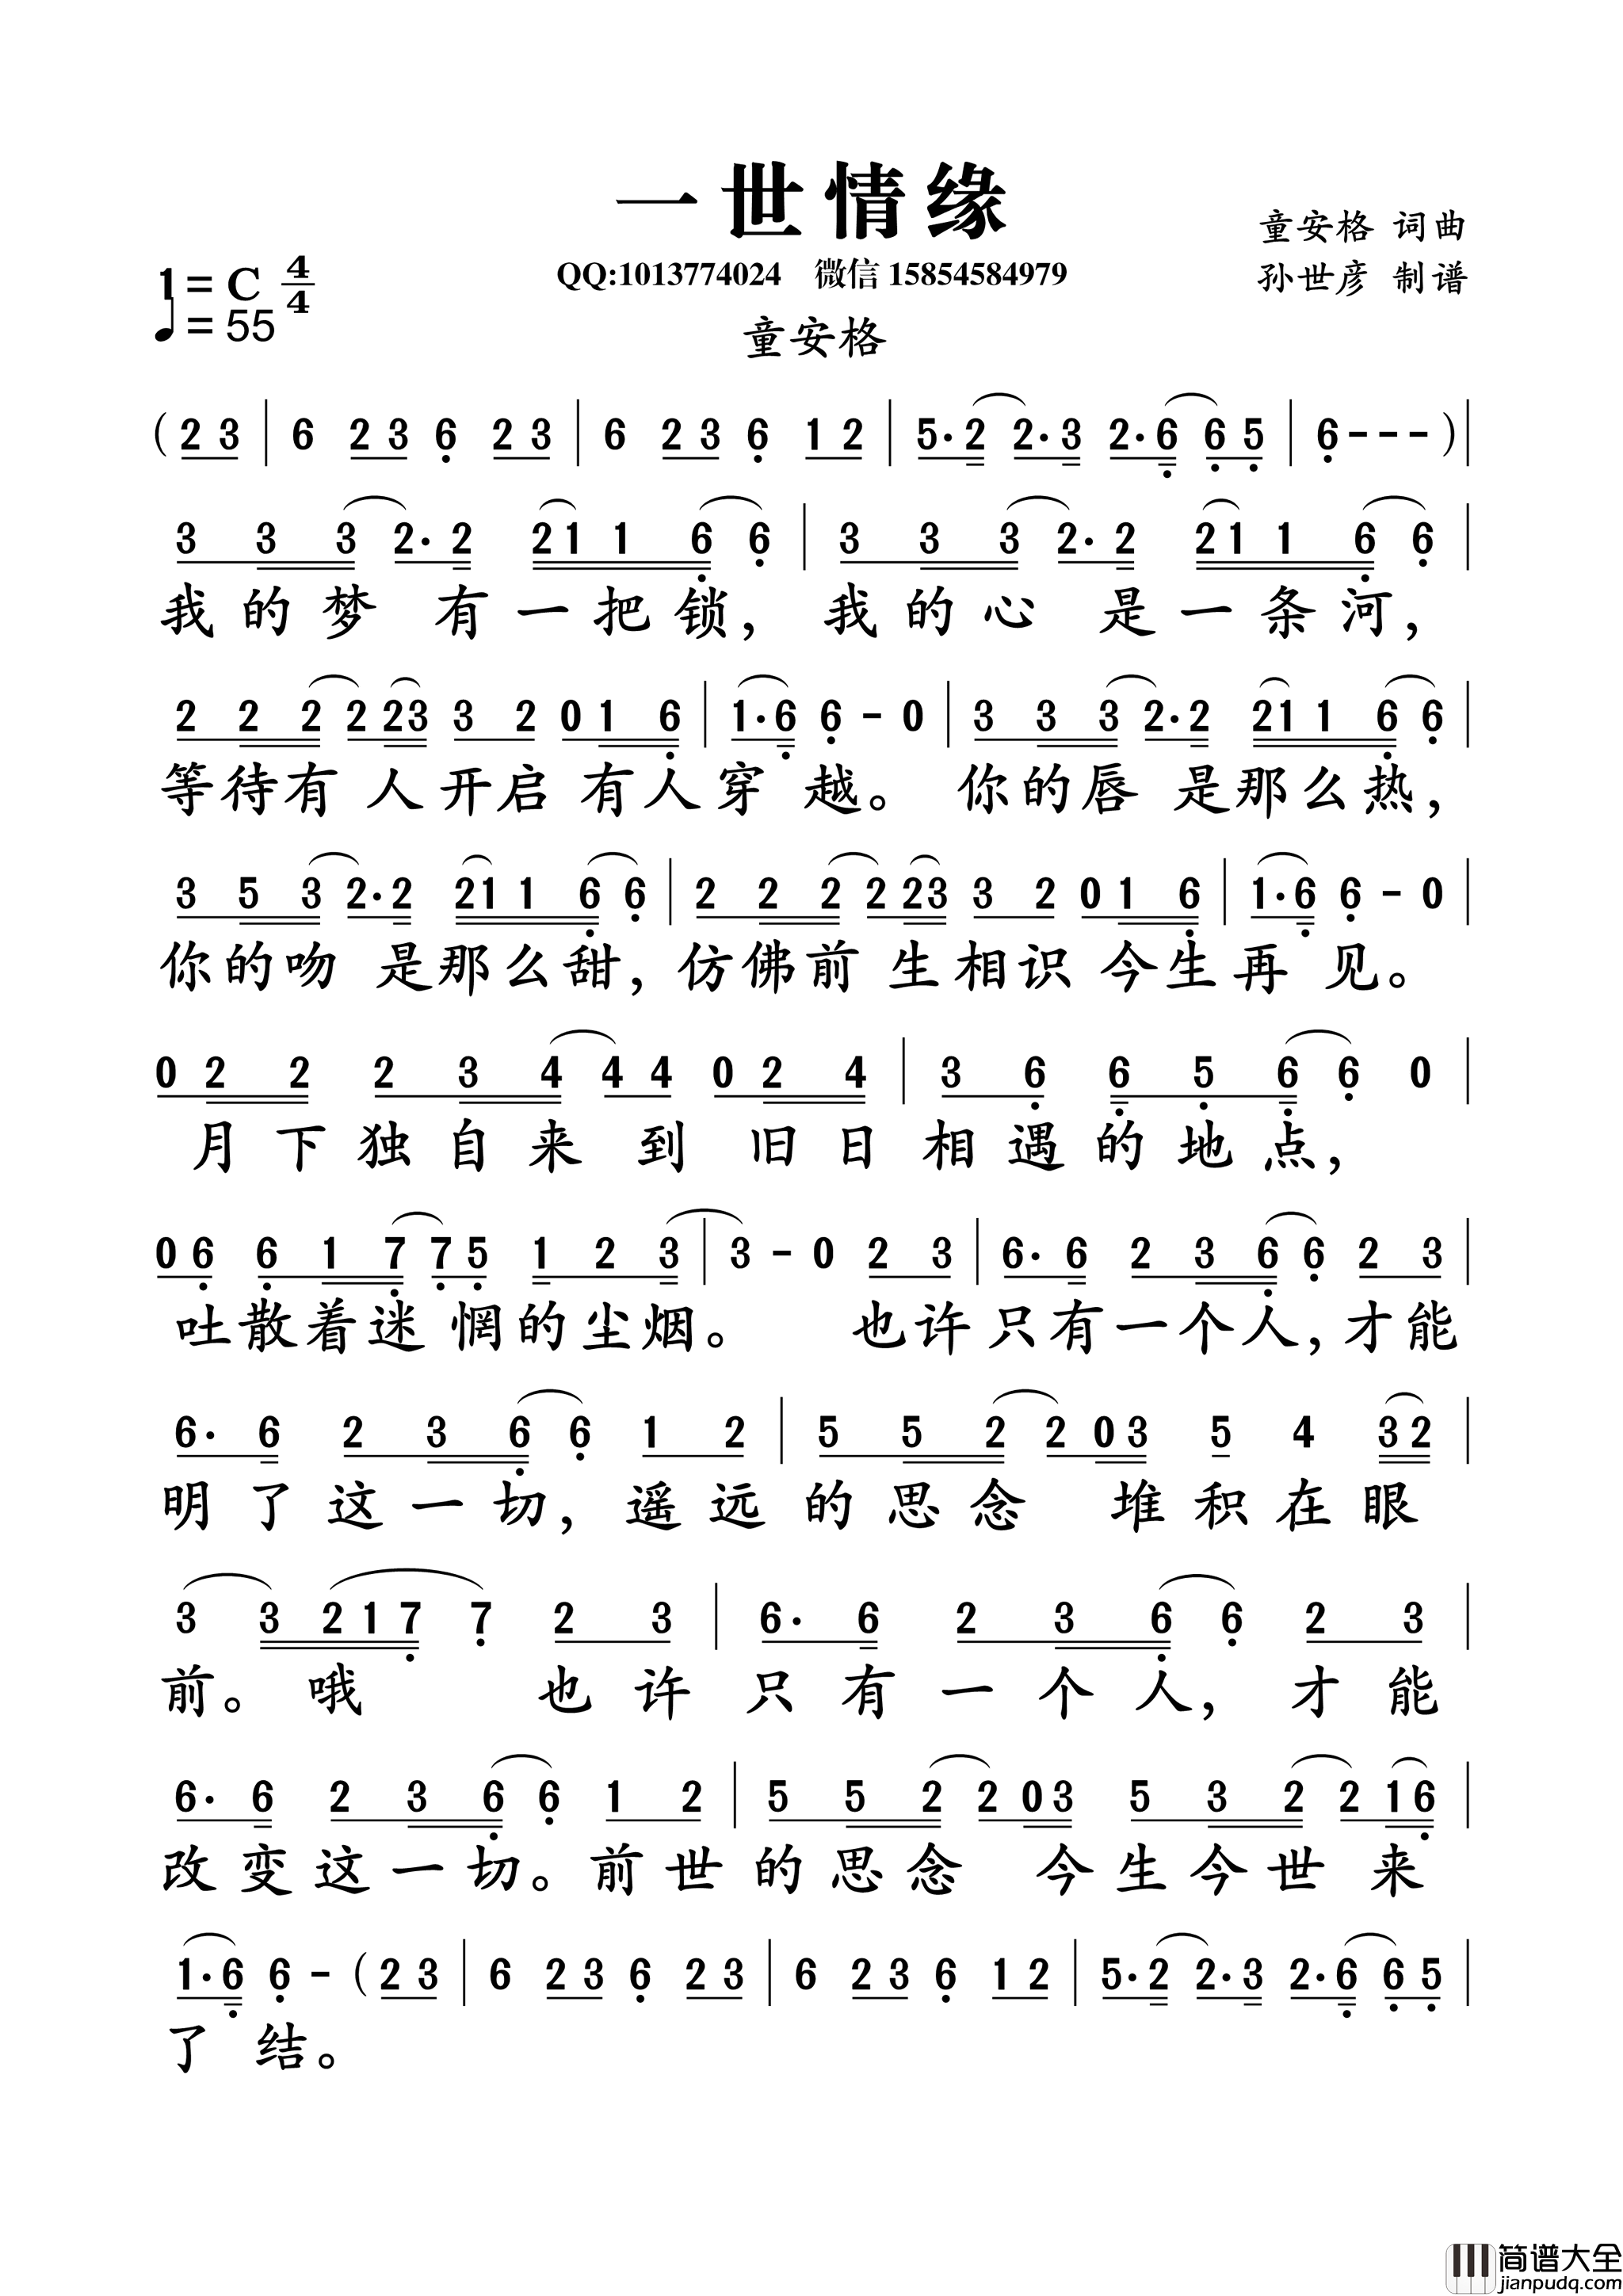 一世情缘
童安格 词曲
1=C 4/4
QQ:1013774024 微信 15854584979
孙世彦 制谱
♩=55
童安格
( 2 3 | 6 2 3 6 2 3 | 6 2 3 6 1 2 | 5· 2 2· 3 2· 6 6 5 | 6 - - - ) |
3 3 3 2· 2 2 1 1 6 6 | 3 3 3 2· 2 2 1 1 6 6 |
我的梦 有一把锁， 我的心 是一条河，
2 2 2 2 2 3 3 2 0 1 6 | 1· 6 6 - 0 | 3 3 3 2· 2 2 1 1 6 6 |
等待有 人开启 有人穿 越。 你的唇 是那么热，
3 5 3 2· 2 2 1 1 6 6 | 2 2 2 2 2 3 3 2 0 1 6 | 1· 6 6 - 0 |
你的吻 是那么甜， 仿佛前 生相识 今生再 见。
0 2 2 2 3 4 4 4 0 2 4 | 3 6 6 5 6 6 0 |
月下独自来 到 旧日相遇的地点，
0 6 6 1 7 7 5 1 2 3 | 3 - 0 2 3 | 6· 6 2 3 6 6 2 3 |
吐散着迷 惘的尘烟。 也许只有一个人，才能
6· 6 2 3 6 6 1 2 | 5 5 2 2 0 3 5 4 3 2 |
明了这一切，遥远的思念 堆积在眼
3 3 2 1 7 7 2 3 | 6· 6 2 3 6 6 2 3 |
前。哦 也许只有一个人，才能
6· 6 2 3 6 6 1 2 | 5 5 2 2 0 3 5 3 2 2 1 6 |
改变这一切。前世的思念 今生今世 来
1· 6 6 - ( 2 3 | 6 2 3 6 2 3 | 6 2 3 6 1 2 | 5· 2 2· 3 2· 6 6 5 |
了结。
简谱大全
jianpudq.com